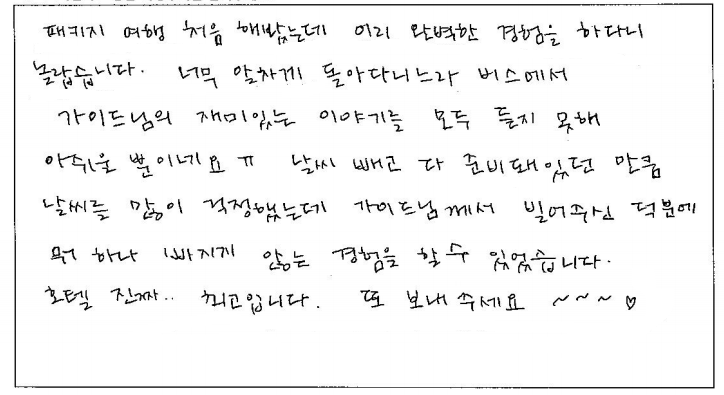 패키지 여행 처음 해봤는데 이리 완벽한 경험을 하다니
놀랍습니다. 너무 알차게 돌아다니느라 버스에서
가이드님의 재미있는 이야기를 모두 듣지 못해
아쉬울 뿐이네요 ㅠ 날씨 빼고 다 준비돼있던 만큼
날씨를 많이 걱정했는데 가이드님께서 빌어주신 덕분에
뭐 하나 빠지지 않는 경험을 할 수 있었습니다.
호텔 진짜.. 최고입니다. 또 보내주세요 ~~~♡